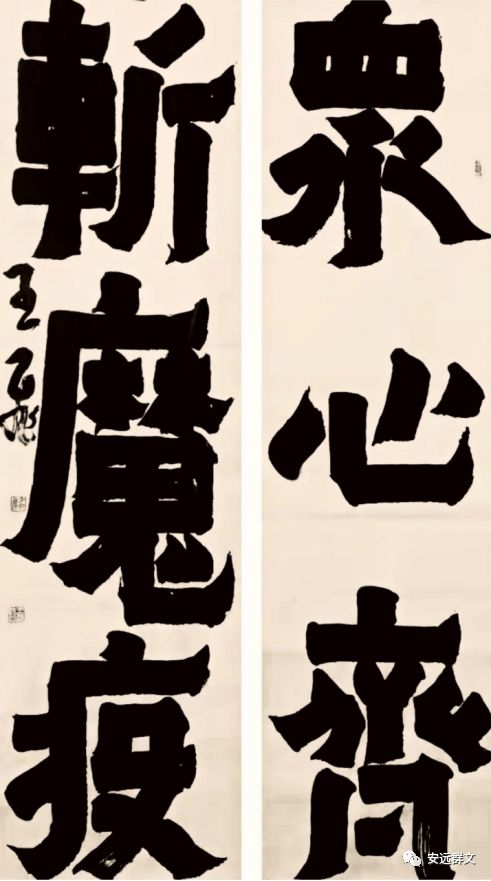 眾心齊
斬魔疫
安远群文